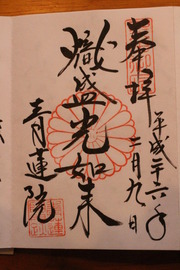 奉拝
平成二十六年
二月九日
熾盛光如来
青蓮院